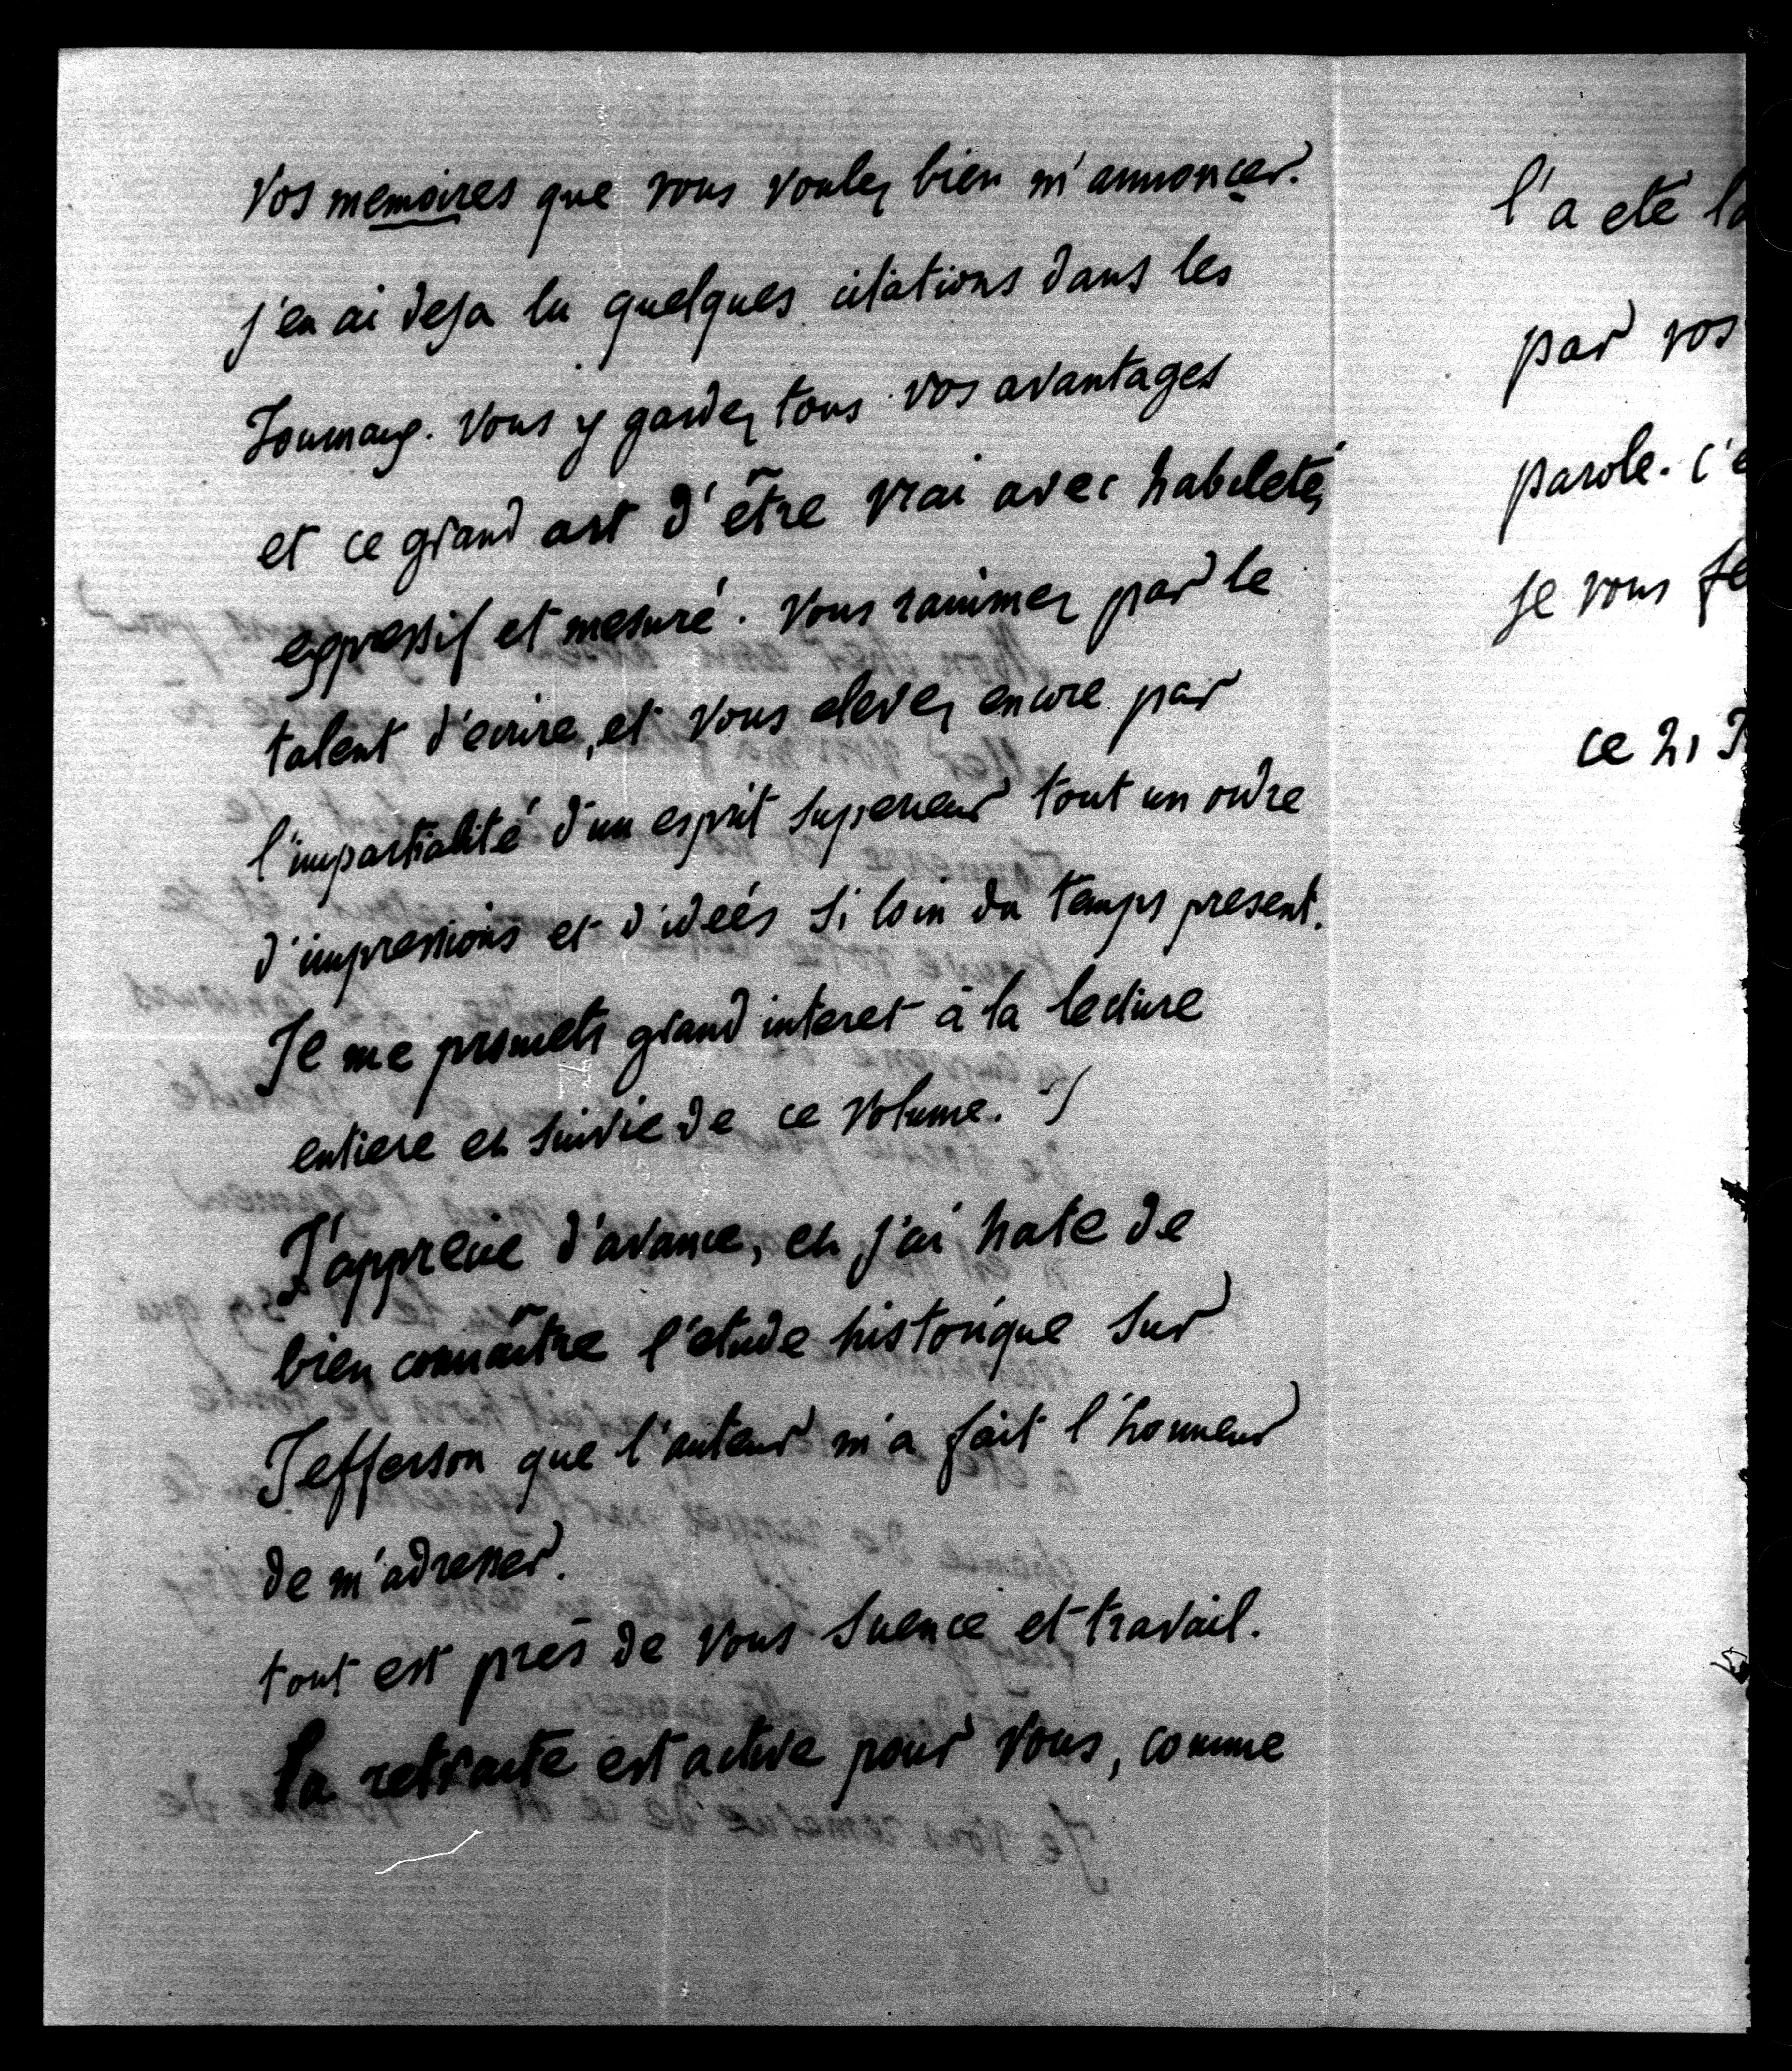 vos memoires que vous voulez bien m'annoncer.
j'en ai deja lu quelques citations dans les
Journaux. Vous y gardez tous vos avantages
et ce grand art d'être vrai avec habileté,
expressif et mesuré. Vous ranimez par le
talent d'ecrire, et vous elevez encore par
l'impartialité d'un esprit superieur tout un ordre
d'impressions et d'idées si loin du temps present.
Je me promets grand interet à la lecture
entiere et suivie de ce volume.
J'apprecie d'avance, et j'ai hate de
bien connaître l'etude historique sur
Jefferson que l'auteur m'a fait l'honneur
de m'adresser.
tout est près de vous science et travail.
la retraite est active pour vous, comme
l'a eté
par vos
parole.
je vous
ce 21